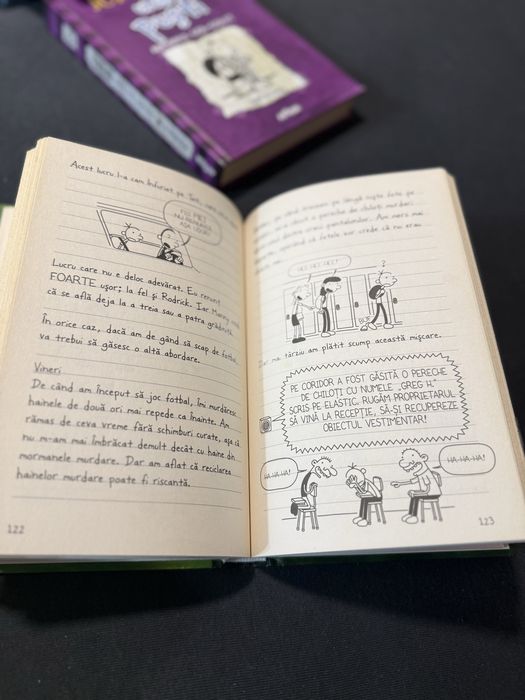 Acest lucru l-a cam înfuriat pe Tata,
Lucru care nu e deloc adevărat. Eu renunț
FOARTE ușor; la fel și Rodrick. Iar Manny
că se află deja la a treia sau a patra grădiniță.
În orice caz, dacă am de gând să scap de fotbal,
va trebui să găsesc o altă abordare.
Vineri
De când am început să joc fotbal, îmi murdăresc
hainele de două ori mai repede ca înainte. Am
rămas de ceva vreme fără schimburi curate, așa că
nu m-am mai îmbrăcat demult decât cu haine din
mormanele murdare. Dar am aflat că reciclarea
hainelor murdare poate fi riscantă.
122
pe lângă niște fete pe
o pereche de chiloți murdari
pantalonilor. Am mers mai
fetele vor crede că nu erau
HEI! HEI! HEI!
?
mai târziu am plătit scump această mișcare.
PE CORIDOR A FOST GĂSITĂ O PERECHE
DE CHILOȚI CU NUMELE „GREG H.”
SCRIS PE ELASTIC. RUGĂM PROPRIETARUL
SĂ VINĂ LA RECEPȚIE, SĂ-ȘI RECUPEREZE
OBIECTUL VESTIMENTAR!
HA-HA-HA!
HA-HA-HA!
123